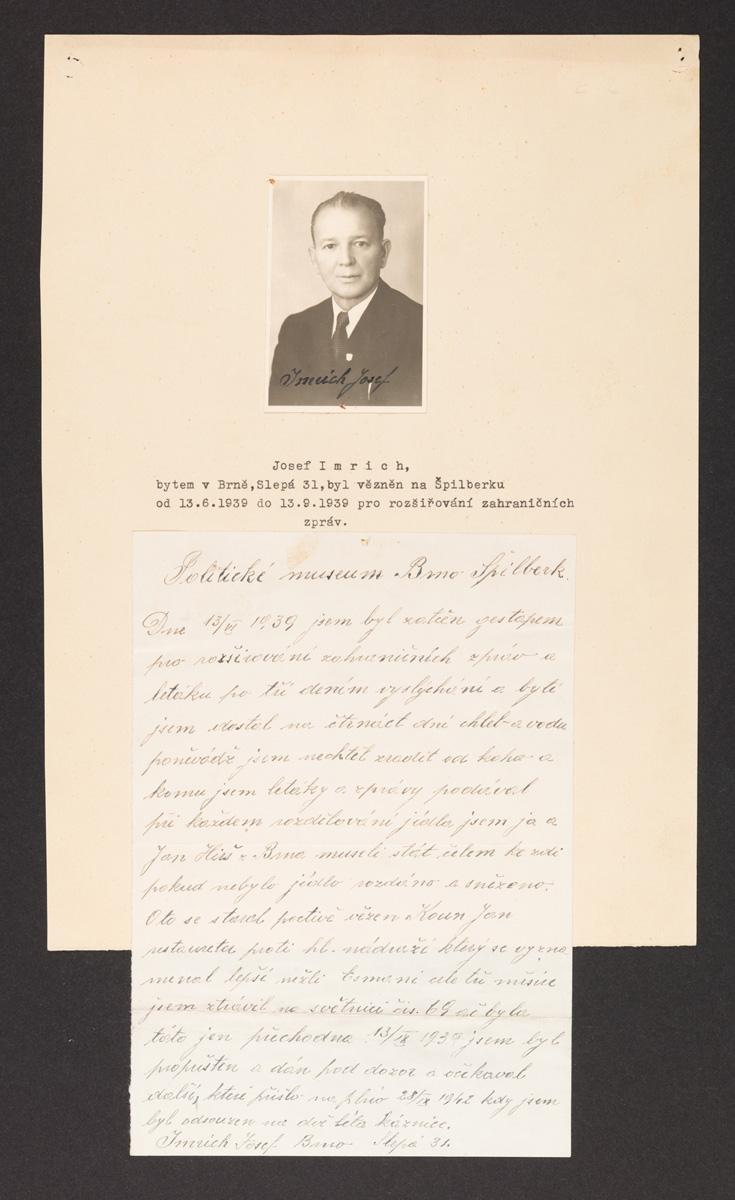 Imrich Josef
Josef I m r i c h,
bytem v Brně,Slepá 31,byl vězněn na Špilberku
od 13.6.1939 do 13.9.1939 pro rozšiřování zahraničních
zpráv.
Politické museum Brno Špilberk.
Dne 13/VI 1939 jsem byl zatčen gestapem
pro rozširování zahraničních zpráv a
letáku po tří dením vyslýchání a bytí
jsem dostal na čtrnáct dní chleb a vodu
poněvádž jsem nechtěl zradit od koho a
komu jsem letáky a zprávy podával
při každem rozdělování jídla jsem ja a
Jan Hirš z Brna museli stát čelem ke zdi
pokud nebylo jídlo rozdáno a snězeno.
O to se staral poctivě vězen Koun Jan
restaurater proti hl. nádraží který se vyzna
menal lepší nežli Esmani cele tři měsíce
jsem ztrávil na světnici čís. 69 ač byla
táto jen přechodna. 13/IX 1939 jsem byl
propuštěn a dán pod dozor a očekaval
další, které přišlo na plno 28/IX 1942 kdy jsem
byl odsouzen na dvě léta káznice.
Imrich Josef Brno Slepá 31.